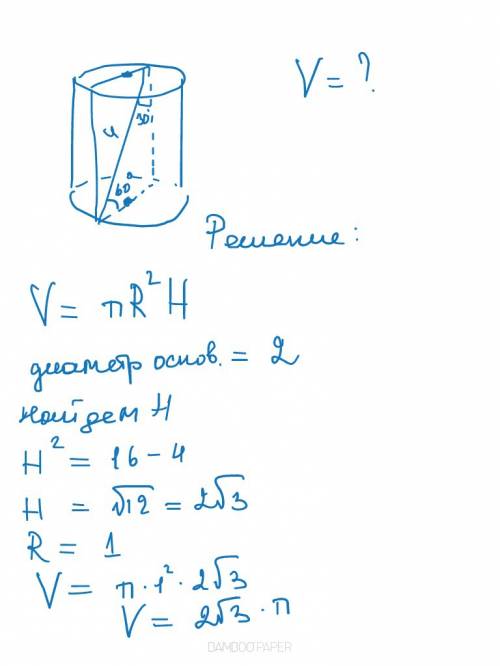 V = ?
30
4
60
Решение:
V = πR²H
диаметр основ. = 2
найдем H
H² = 16 - 4
H = √12 = 2√3
R = 1
V = π · 1² · 2√3
V = 2√3 · π
BAMBOOPAPER